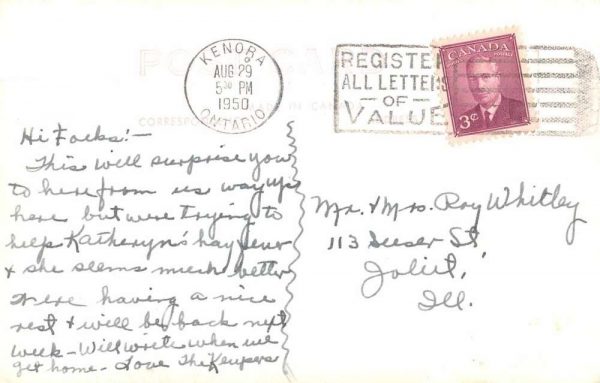 POST CARD
KENORA
AUG 29
5 30 PM
1950
ONTARIO
REGISTER
ALL LETTERS
OF
VALUE
CANADA
3¢
CORRESPO
IN CANADA
Hi Folks!—
This will surprise you
to here from us way up
here but were trying to
help Katheryn's hay fever
& she seems much better
Were having a nice
rest & will be back next
week - Will write when we
get home - Love The
Mr. & Mrs. Roy Whitley
113 St
Joliet,
Ill.